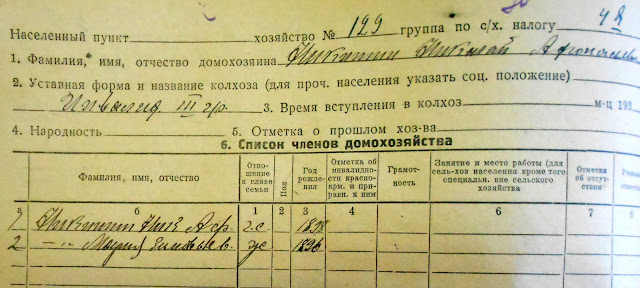 Населенный пункт хозяйство № 129 группа по с/х. налогу
1. Фамилия, имя, отчество домохозяина Никитин Николай
2. Уставная форма и название колхоза (для проч. населения указать соц. положение)
Инвалид III гр. 3. Время вступления в колхоз м-ц 193
4. Народность 5. Отметка о прошлом хоз-ва
6. Список членов домохозяйства
Фамилия, имя, отчество Отношение к главе семьи Пол Год рождения Отметка об инвалидности красноарм. и приравн. к ним Грамотность Занятие и место работы (для сель-хоз населения кроме того специальн. вне сельского хозяйства Отметки об отсутствии
а б 1 2 3 4 5 6 7 8
1 Никитин Ник Аф. г.с. 1898
2 -"- Мария ж 1896